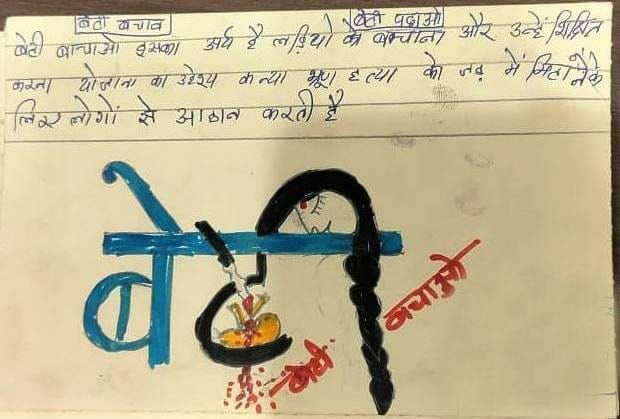 बेटी बचाव बेटी पढाओ
बेटी बाचाओ इसका अर्थ है लड़ियो के बच्चाना और उन्हें शिक्षित
करना योजाना का उद्देश्य कन्या भ्रूण हत्या को जड़ में मिटाने के
लिए लोगों से आहान करती है
बेटी
बचाओ